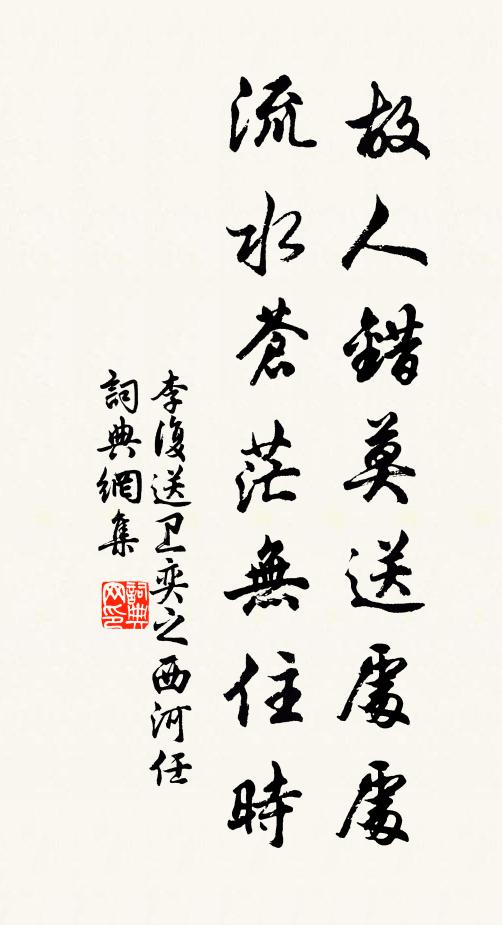 故人錯莫送處處
流水蒼茫無住時
李復送卫奕之西河任
詞典網集
詞典
网印